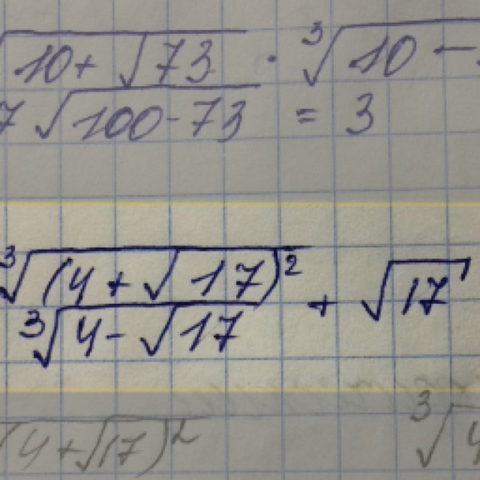 √10+√73 · ³√10-
√100-73 = 3
³√(4+√17)²
³√4-√17 + √17
(4+√17)² ³√4